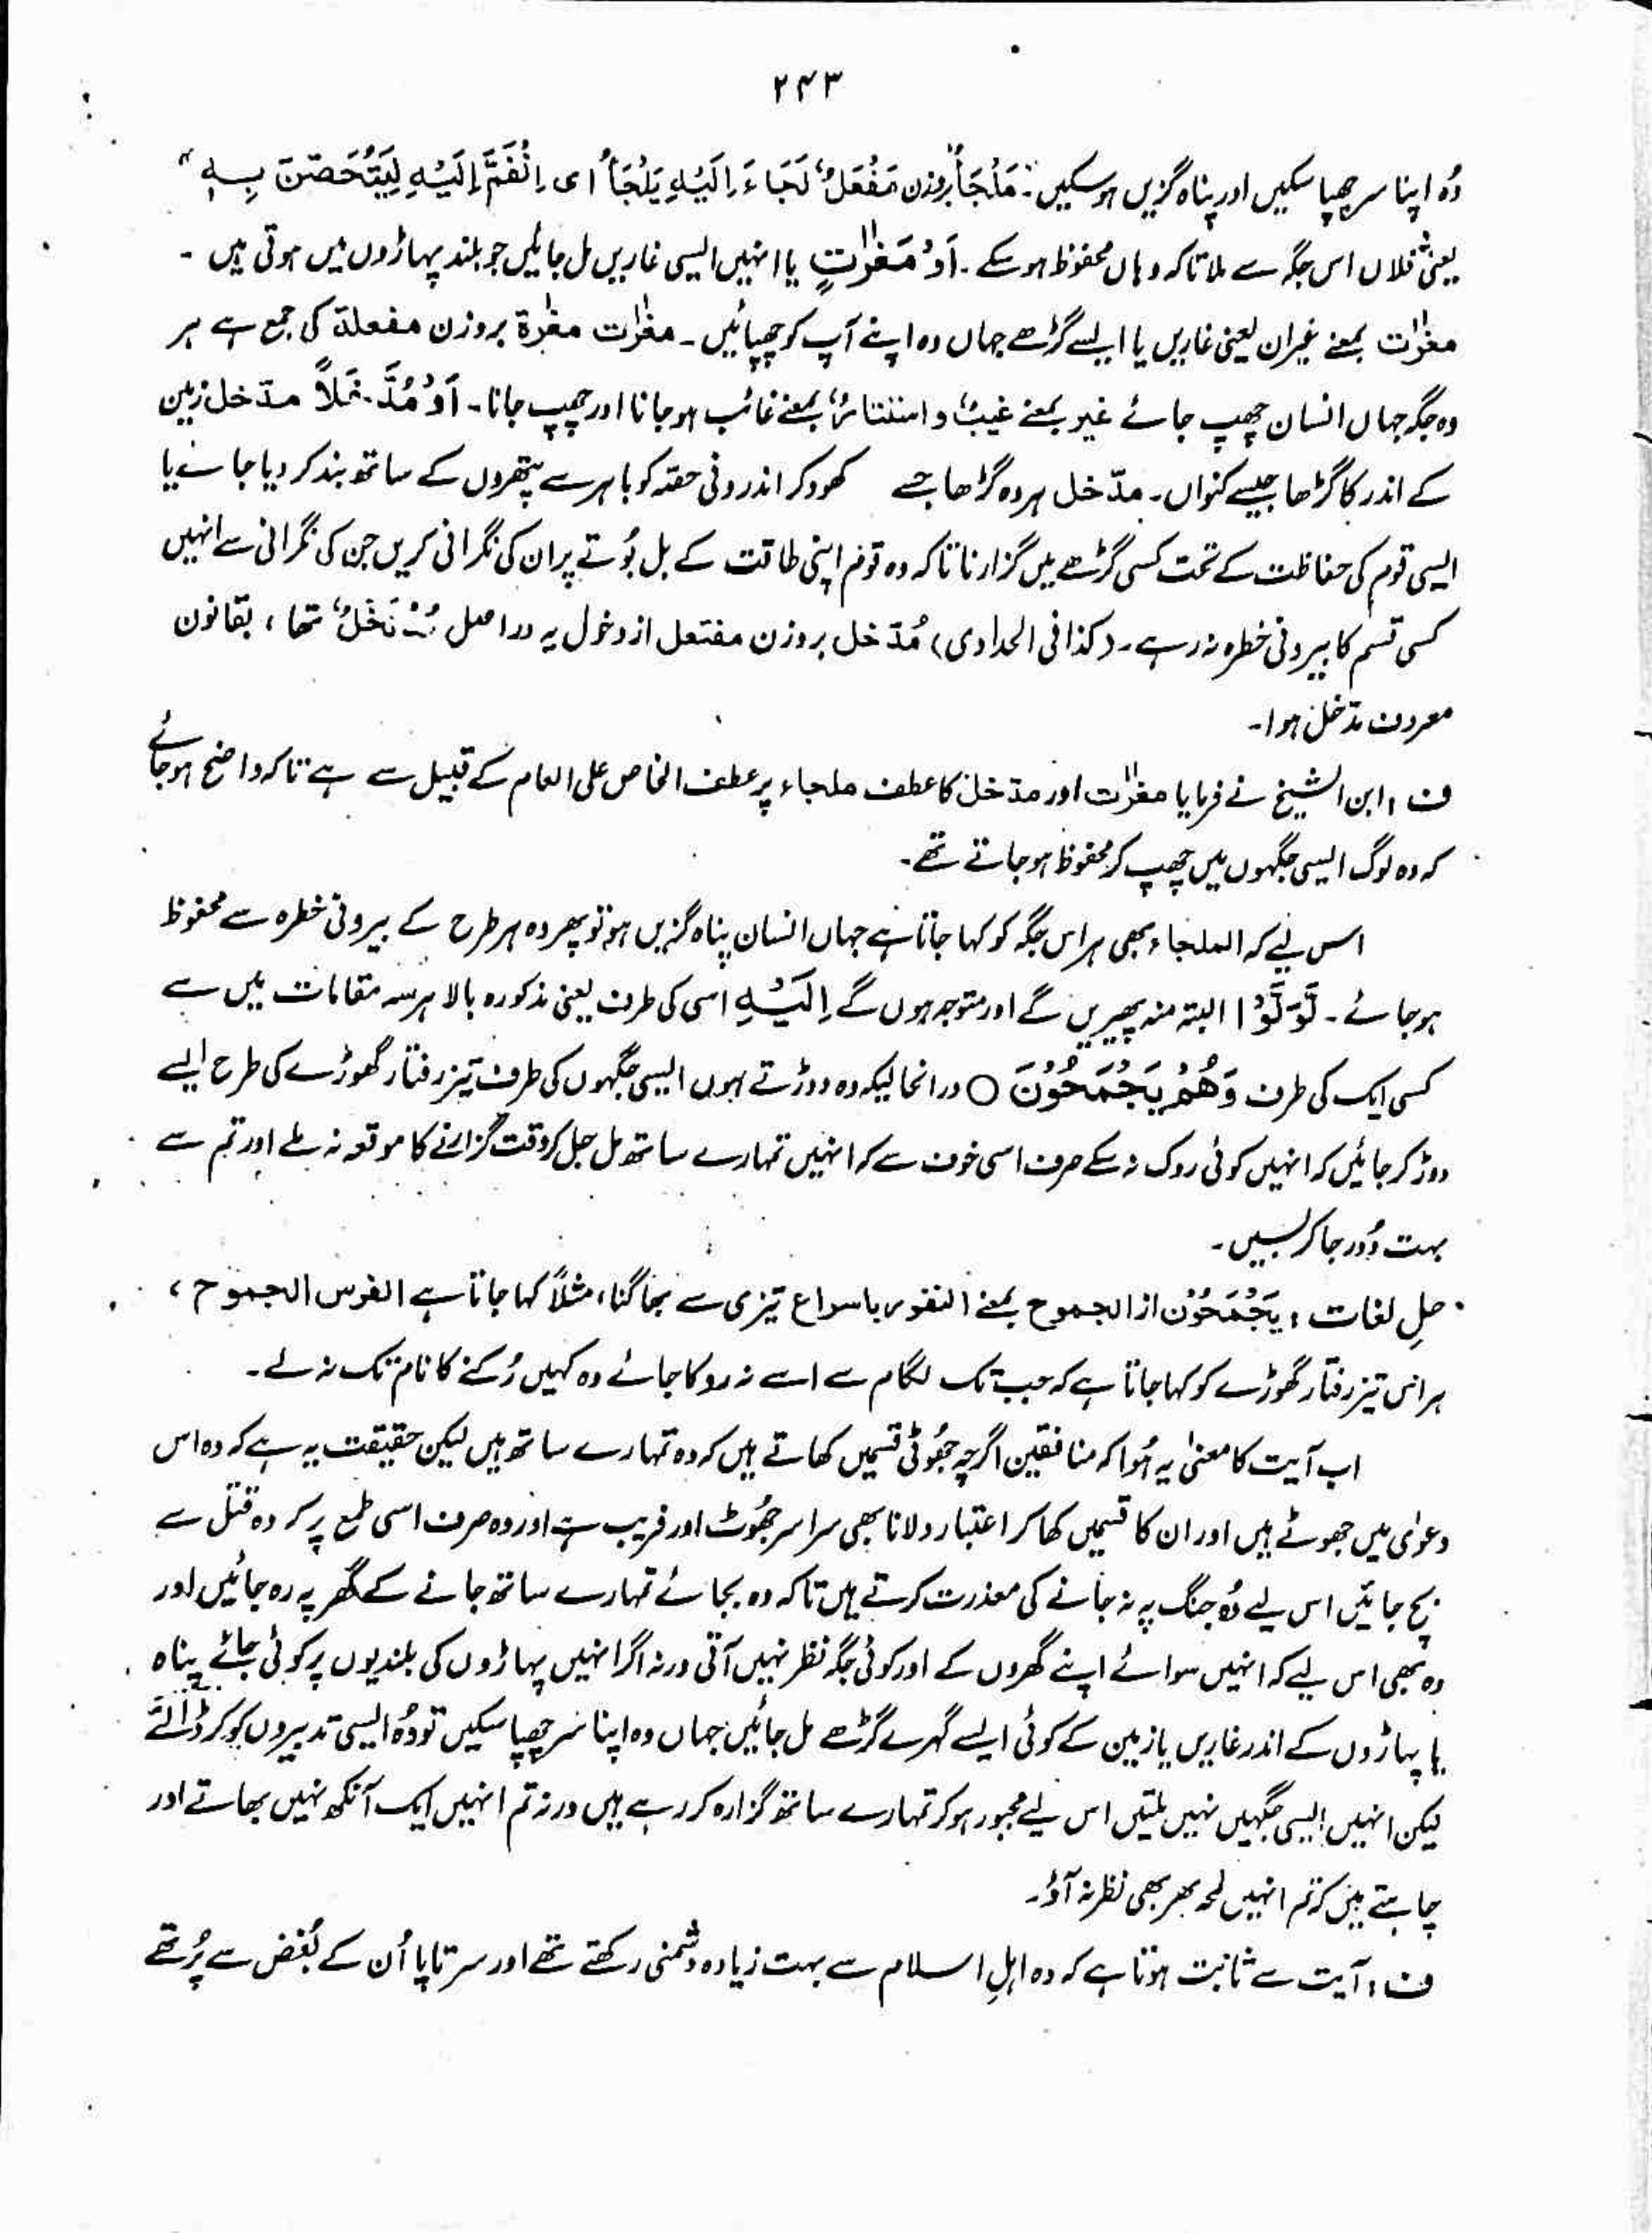 ۲۴۳
وُہ اپنا سر چھپا سکیں اور پناہ گزیں ہو سکیں۔ مَلْجَأً بروزن مَفْعَلٌ، لَجَاءَ اِلَیْہِ یَلْجَأُ ای اِنْضَمَّ اِلَیْہِ لِیَتَحَصَّنَ بِہٖ"
یعنی فلاں اس جگہ سے ملا تاکہ وہاں محفوظ ہو سکے۔ اَوْ مَغٰرٰتٍ یا انہیں ایسی غاریں مل جائیں جو بلند پہاڑوں میں ہوتی ہیں ۔
مغٰرٰت بمعنے غیران یعنی غاریں یا ایسے گڑھے جہاں وہ اپنے آپ کو چھپائیں ۔ مغٰرٰت مغٰرۃ بروزن مفعلۃ کی جمع ہے ہر
وہ جگہ جہاں انسان چھپ جائے غیر بمعنے غیبٌ و استتارٌ، بمعنے غائب ہو جانا اور چھپ جانا۔ اَوْ مُدَّخَلًا مدّخل زمین
کے اندر کا گڑھا جیسے کنواں۔ مدّخل ہر وہ گڑھا جسے کھود کر اندرونی حصّہ کو باہر سے پتھروں کے ساتھ بند کر دیا جائے یا
ایسی قوم کی حفاظت کے تحت کسی گڑھے میں گزارنا تاکہ وہ قوم اپنی طاقت کے بل بُوتے پر ان کی نگرانی کریں جن کی نگرانی سے انہیں
کسی قسم کا بیرونی خطرہ نہ رہے۔ (کذا فی الحدادی) مُدّخل بروزن مفتعل از دخول یہ دراصل مُدْتَخَلٌ تھا، بقانون
معروف مدّخل ہوا۔
ف : ابن الشیخ نے فرمایا مغٰرٰت اور مدّخل کا عطف ملجاء پر عطف الخاص علی العام کے قبیل سے ہے تاکہ واضح ہو جائے
کہ وہ لوگ ایسی جگہوں میں چھپ کر محفوظ ہو جاتے تھے۔
اس لیے کہ الملجاء بھی ہر اس جگہ کو کہا جاتا ہے جہاں انسان پناہ گزیں ہو تو پھر وہ ہر طرح کے بیرونی خطرہ سے محفوظ
ہو جائے۔ لَّوَلَّوْا البتہ منہ پھیریں گے اور متوجہ ہوں گے اِلَیْہِ اسی کی طرف یعنی مذکورہ بالا ہر سہ مقامات میں سے
کسی ایک کی طرف وَھُمْ یَجْمَحُوْنَ ○ درانحالیکہ وہ دوڑتے ہوں ایسی جگہوں کی طرف تیز رفتار گھوڑے کی طرح ایسے
دوڑ کر جائیں کہ انہیں کوئی روک نہ سکے صرف اسی خوف سے کہ انہیں تمہارے ساتھ مل جل کر وقت گزارنے کا موقعہ نہ ملے اور تم سے
بہت دُور جا کر بسیں۔
حلِ لغات : یَجْمَحُوْن از الجموح بمعنے النفور باسراع تیزی سے بھاگنا، مثلاً کہا جاتا ہے الفرس الجموح ،
ہر اس تیز رفتار گھوڑے کو کہا جاتا ہے کہ جب تک لگام سے اسے نہ روکا جائے وہ کہیں رُکنے کا نام تک نہ لے۔
اب آیت کا معنیٰ یہ ہُوا کہ منافقین اگرچہ جھُوٹی قسمیں کھاتے ہیں کہ وہ تمہارے ساتھ ہیں لیکن حقیقت یہ ہے کہ وہ اس
دعوٰی میں جھوٹے ہیں اور ان کا قسمیں کھا کر اعتبار دلانا بھی سراسر جھُوٹ اور فریب ہے اور وہ صرف اسی طمع پر کہ وہ قتل سے
بچ جائیں اس لیے وُہ جنگ پہ نہ جانے کی معذرت کرتے ہیں تاکہ وہ بجائے تمہارے ساتھ جانے کے گھر پہ رہ جائیں اور
وہ بھی اس لیے کہ انہیں سوائے اپنے گھروں کے اور کوئی جگہ نظر نہیں آتی ورنہ اگر انہیں پہاڑوں کی بلندیوں پر کوئی جائے پناہ
یا پہاڑوں کے اندر غاریں یا زمین کے کوئی ایسے گہرے گڑھے مل جائیں جہاں وہ اپنا سر چھپا سکیں تو وُہ ایسی تدبیروں کو کر ڈالتے
لیکن انہیں ایسی جگہیں نہیں ملتیں اس لیے مجبور ہو کر تمہارے ساتھ گزارہ کر رہے ہیں ورنہ تم انہیں ایک آنکھ نہیں بھاتے اور
چاہتے ہیں کہ تم انہیں لمحہ بھر بھی نظر نہ آؤ۔
ف : آیت سے ثابت ہوتا ہے کہ وہ اہلِ اسلام سے بہت زیادہ دشمنی رکھتے تھے اور سرتاپا اُن کے بُغض سے پُر تھے